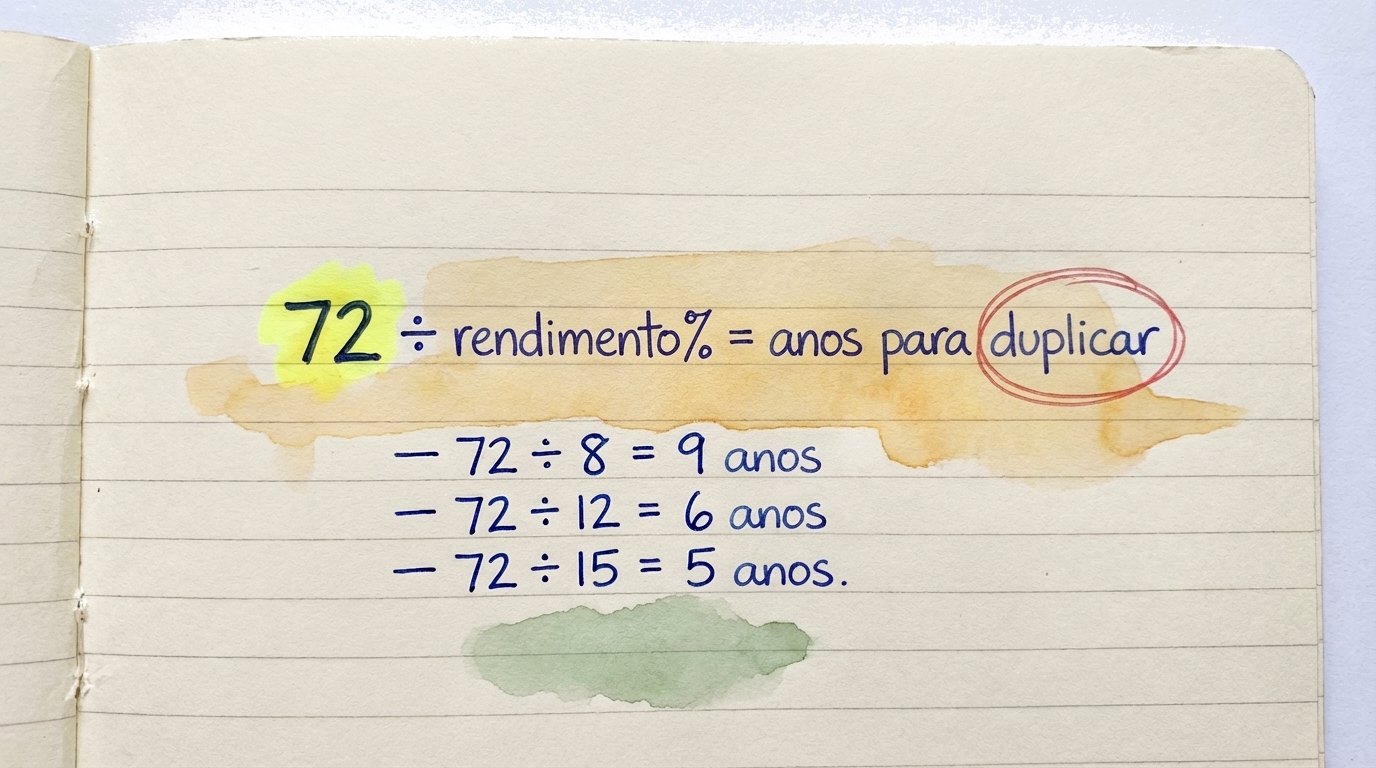 72 ÷ rendimento% = anos para duplicar
— 72 ÷ 8 = 9 anos
— 72 ÷ 12 = 6 anos
— 72 ÷ 15 = 5 anos.